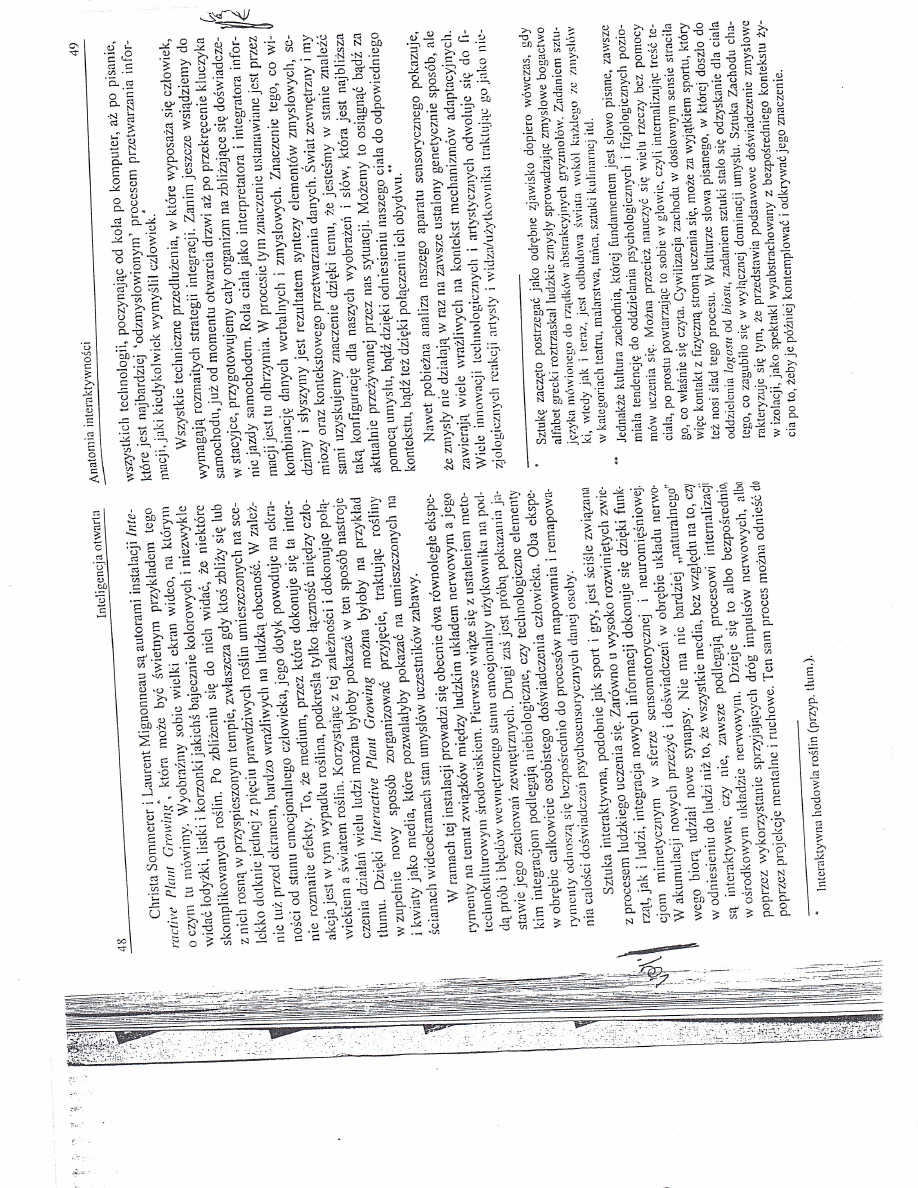 48
Inteligencja otwarta
Christa Sommerer i Laurent Mignonneau są autorami instalacji Inte-
ractive Plant Growing*, która może być świetnym przykładem tego
o czym tu mówimy. Wyobraźmy sobie wielki ekran wideo, na którym
widać łodyżki, listki i korzonki jakichś bajecznie kolorowych i niezwykle
skomplikowanych roślin. Po zbliżeniu się do nich widać, że niektóre
z nich rosną w przyspieszonym tempie, zwłaszcza gdy ktoś zbliży się lub
lekko dotknie jednej z pięciu prawdziwych roślin umieszczonych na sce-
nie tuż przed ekranem, bardzo wrażliwych na ludzką obecność. W zależ-
ności od stanu emocjonalnego człowieka, jego dotyk powoduje na ekra-
nie rozmaite efekty. To, że medium, przez które dokonuje się ta inter-
akcja jest w tym wypadku roślina, podkreśla tylko łączność między czło-
wiekiem a światem roślin. Korzystając z tej zależności i dokonując połą-
czenia działań wielu ludzi można byłoby pokazać w ten sposób nastroje
tłumu. Dzięki Interactive Plant Growing można byłoby na przykład
w zupełnie nowy sposób zorganizować przyjęcie, traktując rośliny
i kwiaty jako media, które pozwalałyby pokazać na umieszczonych na
ścianach wideoekranach stan umysłów uczestników zabawy.
W ramach tej instalacji prowadzi się obecnie dwa równoległe ekspe-
rymenty na temat związków między ludzkim układem nerwowym a jego
technokulturowym środowiskiem. Pierwsze wiąże się z ustaleniem meto-
dą prób i błędów wewnętrznego stanu emocjonalny użytkownika na pod-
stawie jego zachowań zewnętrznych. Drugi zaś jest próbą pokazania ja-
kim integracjom podlegają niebiologiczne, czy technologiczne elementy
w obrębie całkowicie osobistego doświadczenia człowieka. Oba ekspe-
rymenty odnoszą się bezpośrednio do procesów mapowania i remapowa-
nia całości doświadczeń psychosensorycznych danej osoby.
Sztuka interaktywna, podobnie jak sport i gry, jest ściśle związana
z procesem ludzkiego uczenia się. Zarówno u wysoko rozwiniętych zwie-
rząt, jak i ludzi, integracja nowych informacji dokonuje się dzięki funk-
cjom mimetycznym w sferze sensomotorycznej i neuromięśniowej.
W akumulacji nowych przeżyć i doświadczeń w obrębie układu nerwo-
wego biorą udział nowe synapsy. Nie ma nic bardziej „naturalnego”
w odniesieniu do ludzi niż to, że wszystkie media, bez względu na to, czy
są interaktywne, czy nie, zawsze podlegają procesowi internalizacji
w ośrodkowym układzie nerwowym. Dzieje się to albo bezpośrednio,
poprzez wykorzystanie sprzyjających dróg impulsów nerwowych, albo
poprzez projekcje mentalne i ruchowe. Ten sam proces można odnieść do
* Interaktywna hodowla roślin (przyp. tłum.).
Anatomia interaktywności
49
wszystkich technologii, poczynając od koła po komputer, aż po pisanie,
które jest najbardziej 'odzmysłowionym' procesem przetwarzania infor-
macji, jaki kiedykolwiek wymyślił człowiek.*
Wszystkie techniczne przedłużenia, w które wyposaża się człowiek,
wymagają rozmaitych strategii integracji. Zanim jeszcze wsiądziemy do
samochodu, już od momentu otwarcia drzwi aż po przekręcenie kluczyka
w stacyjce, przygotowujemy cały organizm na zbliżające się doświadcze-
nie jazdy samochodem. Rola ciała jako interpretatora i integratora infor-
macji jest tu olbrzymia. W procesie tym znaczenie ustanawiane jest przez
kombinację danych werbalnych i zmysłowych. Znaczenie tego, co wi-
dzimy i słyszymy jest rezultatem syntezy elementów zmysłowych, se-
miozy oraz kontekstowego przetwarzania danych. Świat zewnętrzny i my
sami uzyskujemy znaczenie dzięki temu, że jesteśmy w stanie znaleźć
taką konfigurację dla naszych wyobrażeń i słów, która jest najbliższa
aktualnie przeżywanej przez nas sytuacji. Możemy to osiągnąć bądź za
pomocą umysłu, bądź dzięki odniesieniu naszego ciała do odpowiedniego
kontekstu, bądź też dzięki połączeniu ich obydwu.**
Nawet pobieżna analiza naszego aparatu sensorycznego pokazuje,
że zmysły nie działają w raz na zawsze ustalony genetycznie sposób, ale
zawierają wiele wrażliwych na kontekst mechanizmów adaptacyjnych.
Wiele innowacji technologicznych i artystycznych odwołuje się do fi-
zjologicznych reakcji artysty i widza/użytkownika traktując go jako nie-
* Sztukę zaczęto postrzegać jako odrębne zjawisko dopiero wówczas, gdy
alfabet grecki roztrzaskał ludzkie zmysły sprowadzając zmysłowe bogactwo
języka mówionego do rządków abstrakcyjnych gryzmołów. Zadaniem sztu-
ki, wtedy jak i teraz, jest odbudowa świata wokół każdego ze zmysłów
w kategoriach teatru, malarstwa, tańca, sztuki kulinarnej itd.
** Jednakże kultura zachodnia, której fundamentem jest słowo pisane, zawsze
miała tendencję do oddzielania psychologicznych i fizjologicznych pozio-
mów uczenia się. Można przecież nauczyć się wielu rzeczy bez pomocy
ciała, po prostu powtarzając to sobie w głowie, czyli internalizując treść te-
go, co właśnie się czyta. Cywilizacja zachodu w dosłownym sensie straciła
więc kontakt z fizyczną stroną uczenia się, może za wyjątkiem sportu, który
też nosi ślad tego procesu. W kulturze słowa pisanego, w której doszło do
oddzielenia logosu od biosu, zadaniem sztuki stało się odzyskanie dla ciała
tego, co zagubiło się w wyłącznej dominacji umysłu. Sztuka Zachodu cha-
rakteryzuje się tym, że przedstawia podstawowe doświadczenie zmysłowe
w izolacji, jako spektakl wyabstrachowany z bezpośredniego kontekstu ży-
cia po to, żeby je później kontemplować i odkrywać jego znaczenie.